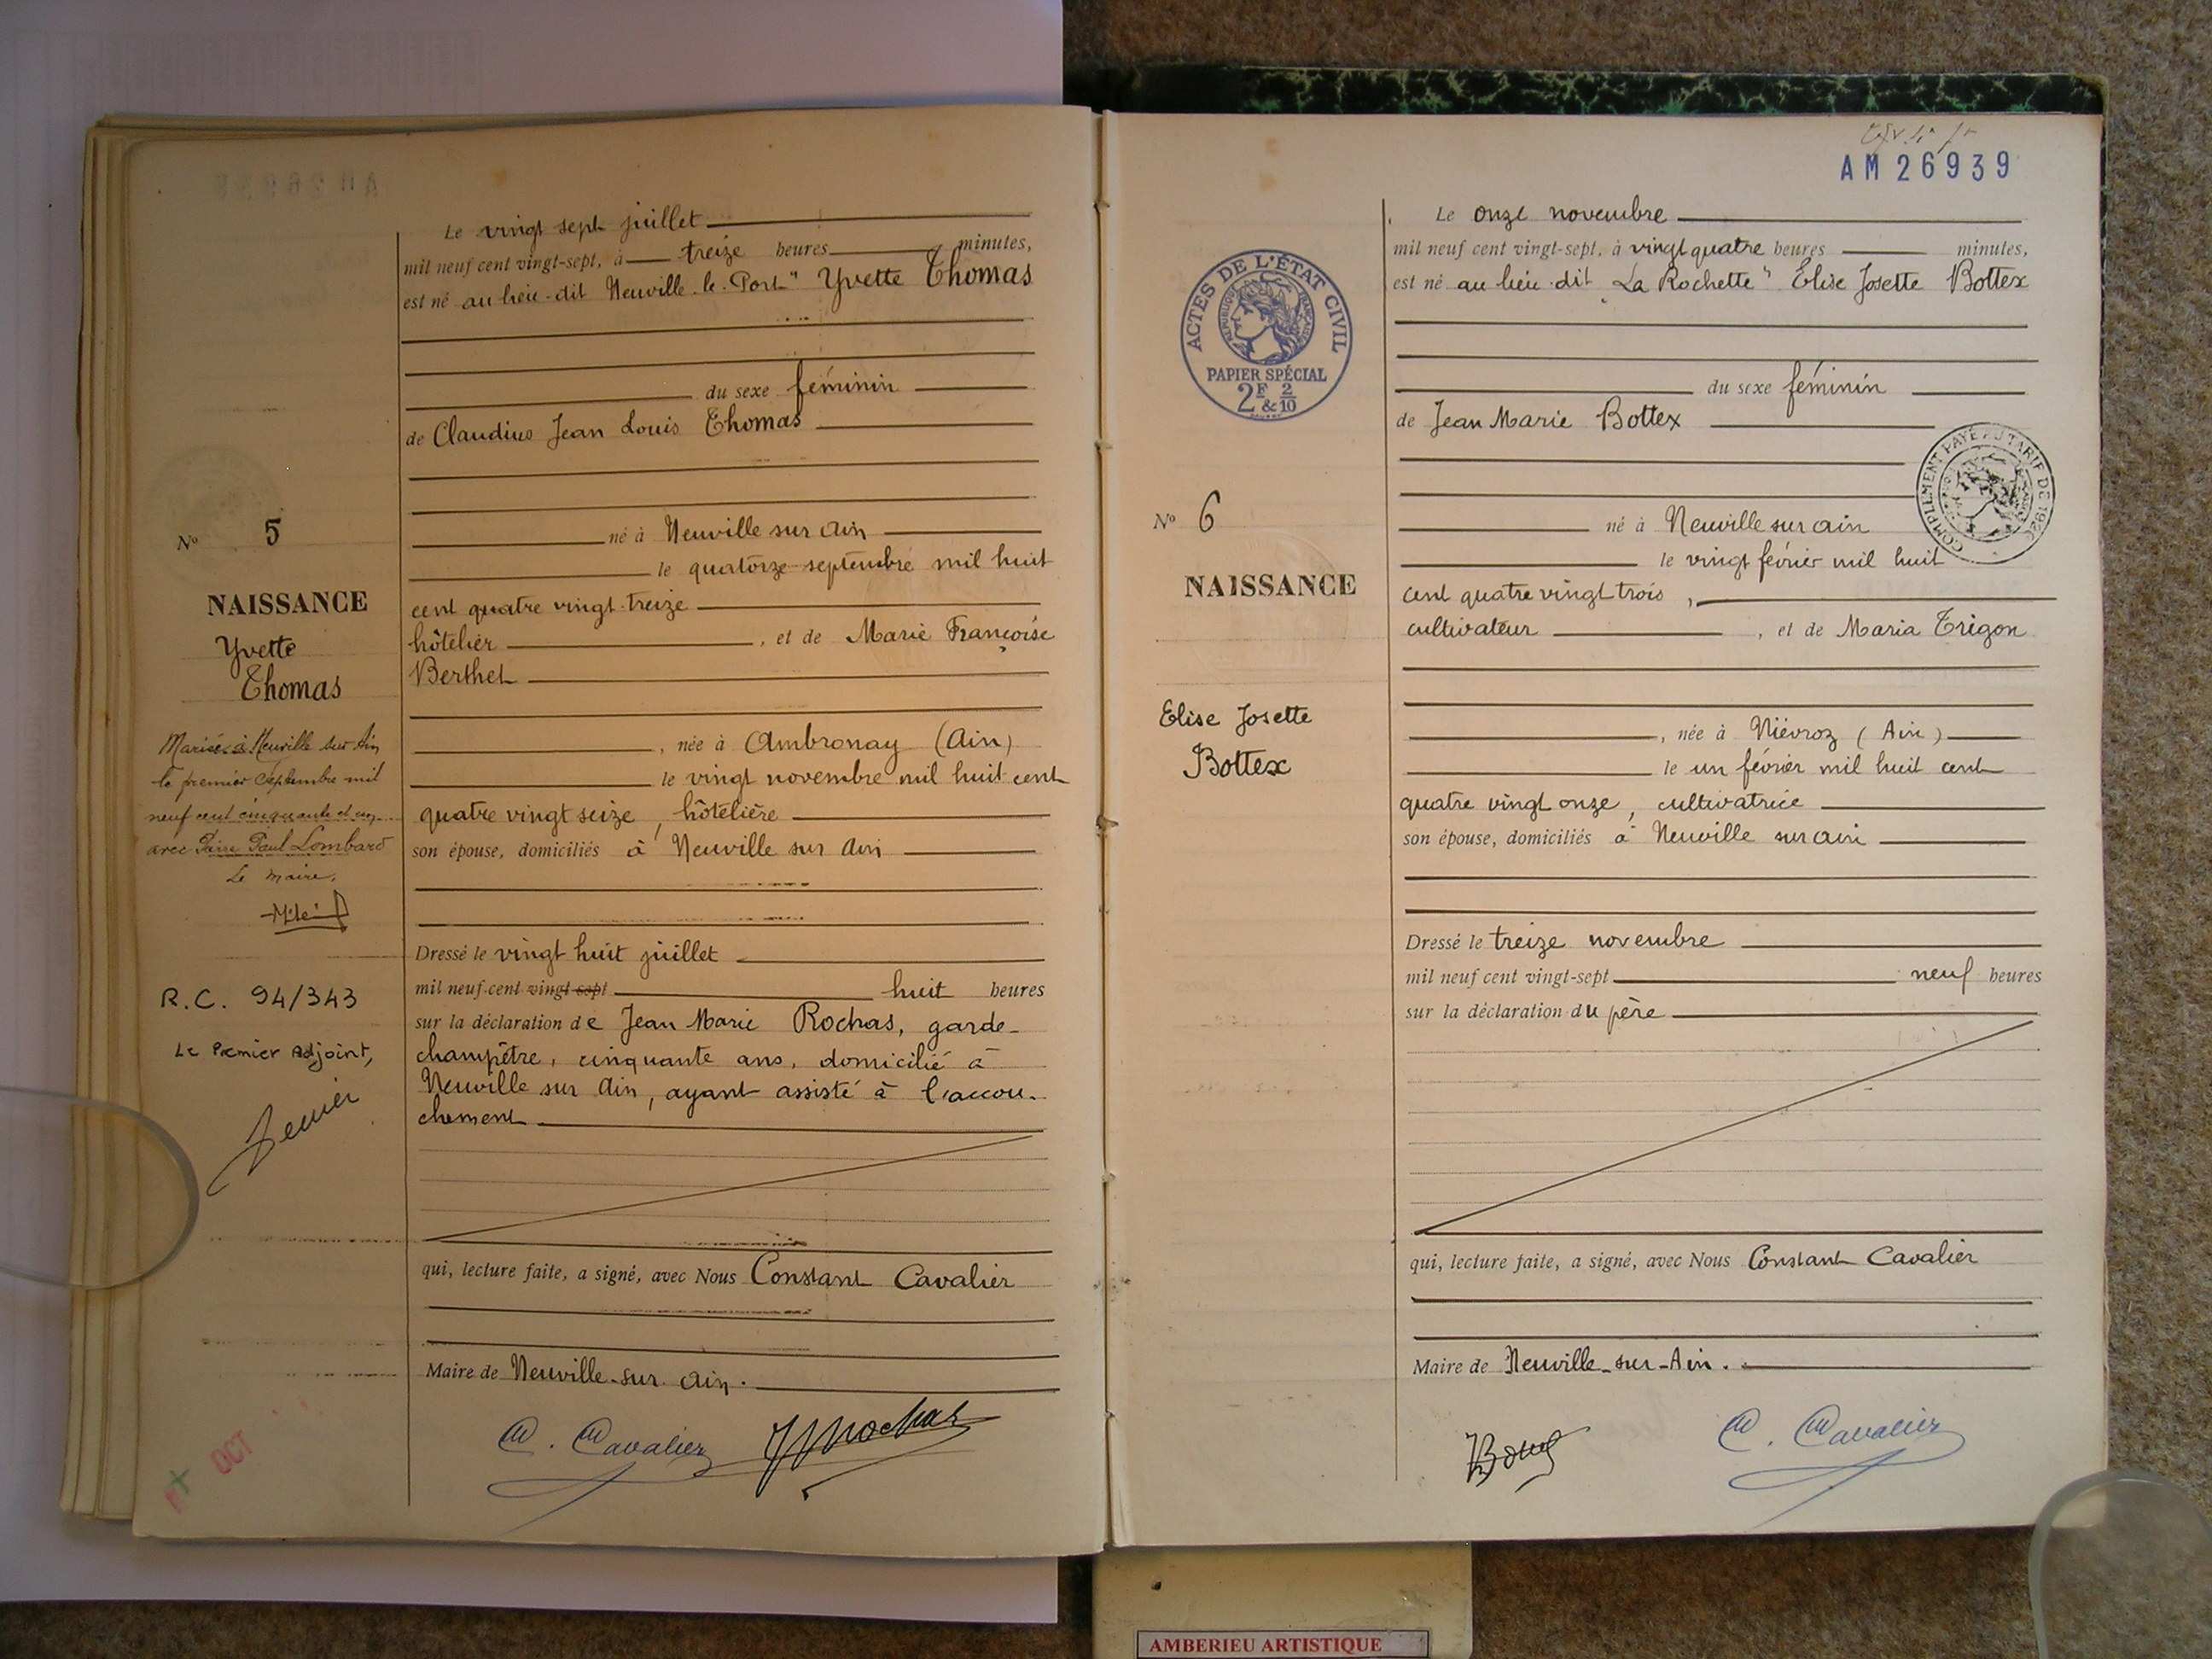 Le vingt sept juillet
mil neuf cent vingt-sept, à treize heures minutes,
est né au lieu-dit Neuville-le-Port" Yvette Thomas
du sexe féminin
de Claudius Jean Louis Thomas
né à Neuville sur Ain
le quatorze septembre mil huit
cent quatre vingt-treize
hôtelier, et de Marie Françoise
Berthet
, née à Ambronay (Ain)
le vingt novembre mil huit cent
quatre vingt seize, hôtelière
son épouse, domiciliés à Neuville sur Ain
Dressé le vingt huit juillet
mil neuf cent vingt-sept huit heures
sur la déclaration de Jean Marie Rochas, garde-
champêtre, cinquante ans, domicilié à
Neuville sur Ain, ayant assisté à l'accou-
chement
qui, lecture faite, a signé, avec Nous Constant Cavalier
Maire de Neuville-sur-Ain.
C. Cavalier JMRochas
N° 5
NAISSANCE
Yvette
Thomas
Mariée à Neuville sur Ain
le premier septembre mil
neuf cent cinquante et un
avec Pierre Paul Lombard
Le maire,
R.C. 94/343
Le Premier Adjoint,
OCT
AM 26939
ACTES DE L'ÉTAT CIVIL
RÉPUBLIQUE FRANÇAISE
PAPIER SPÉCIAL
2F & 2/10
Le onze novembre
mil neuf cent vingt-sept, à vingt quatre heures minutes,
est né au lieu-dit "La Rochette" Elise Josette Bottex
du sexe féminin
de Jean Marie Bottex
COMPLÉMENT PAYÉ AU TARIF DE
né à Neuville sur Ain
le vingt février mil huit
cent quatre vingt trois,
cultivateur, et de Maria Trigon
, née à Niévroz (Ain)
le un février mil huit cent
quatre vingt onze, cultivatrice
son épouse, domiciliés à Neuville sur Ain
Dressé le treize novembre
mil neuf cent vingt-sept neuf heures
sur la déclaration du père
qui, lecture faite, a signé, avec Nous Constant Cavalier
Maire de Neuville-sur-Ain.
C. Cavalier
N° 6
NAISSANCE
Elise Josette
Bottex
AMBERIEU ARTISTIQUE